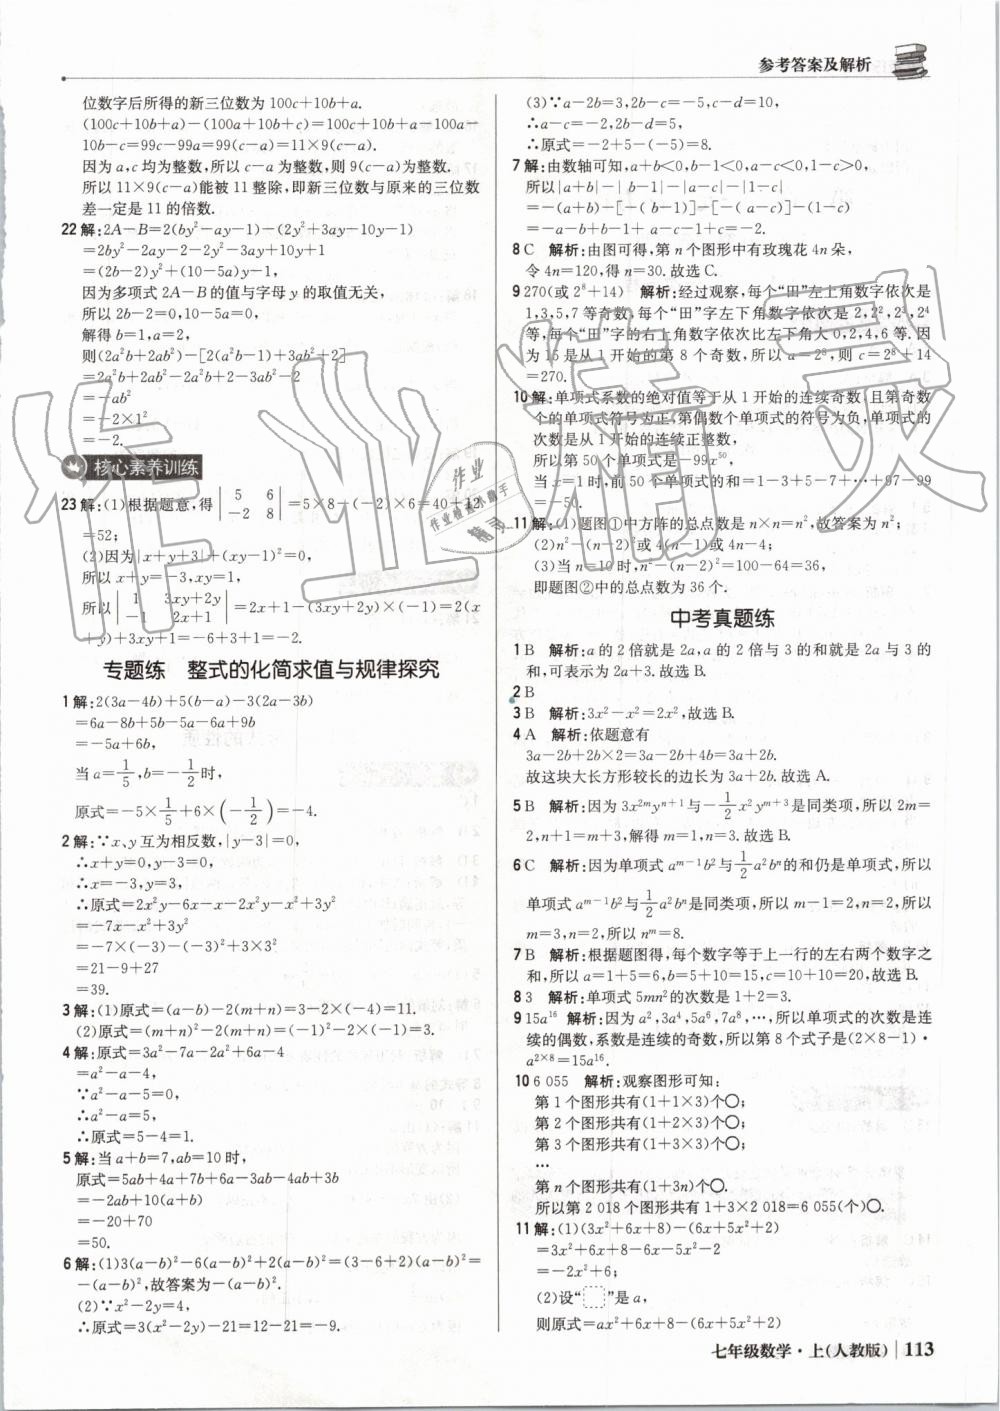 参考答案及解析
位数字后所得的新三位数为100c+10b+a.
(100c+10b+a)-(100a+10b+c)=100c+10b+a-100a-
10b-c=99c-99a=99(c-a)=11×9(c-a).
因为a,c均为整数,所以c-a为整数,则9(c-a)为整数.
所以11×9(c-a)能被11整除,即新三位数与原来的三位数
差一定是11的倍数.
22 解:2A-B=2(by²-ay-1)-(2y²+3ay-10y-1)
=2by²-2ay-2-2y²-3ay+10y+1
=(2b-2)y²+(10-5a)y-1,
因为多项式2A-B的值与字母y的取值无关,
所以2b-2=0,10-5a=0,
解得b=1,a=2,
则(2a²b+2ab²)-[2(a²b-1)+3ab²+2]
=2a²b+2ab²-2a²b+2-3ab²-2
=-ab²
=-2×1²
=-2.
核心素养训练
23 解:(1)根据题意,得|5 6; -2 8|=5×8-(-2)×6=40+12
=52;
(2)因为|x+y+3|+(xy-1)²=0,
所以x+y=-3,xy=1,
所以|1 3xy+2y; -1 2x+1|=2x+1-(3xy+2y)×(-1)=2(x
+y)+3xy+1=-6+3+1=-2.
专题练 整式的化简求值与规律探究
1 解:2(3a-4b)+5(b-a)-3(2a-3b)
=6a-8b+5b-5a-6a+9b
=-5a+6b,
当a=1/5,b=-1/2时,
原式=-5×1/5+6×(-1/2)=-4.
2 解:∵x、y互为相反数,|y-3|=0,
∴x+y=0,y-3=0,
∴x=-3,y=3,
∴原式=2x²y-6x-x-2x²y-x²+3y²
=-7x-x²+3y²
=-7×(-3)-(-3)²+3×3²
=21-9+27
=39.
3 解:(1)原式=(a-b)-2(m+n)=3-2×(-4)=11.
(2)原式=(m+n)²-2(m+n)=(-1)²-2×(-1)=3.
4 解:原式=3a²-7a-2a²+6a-4
=a²-a-4,
∵a²-a-5=0,
∴a²-a=5,
∴原式=5-4=1.
5 解:当a+b=7,ab=10时,
原式=5ab+4a+7b+6a-3ab-4ab+3b
=-2ab+10(a+b)
=-20+70
=50.
6 解:(1)3(a-b)²-6(a-b)²+2(a-b)²=(3-6+2)(a-b)²=
-(a-b)²,故答案为-(a-b)².
(2)∵x²-2y=4,
∴原式=3(x²-2y)-21=12-21=-9.
(3)∵a-2b=3,2b-c=-5,c-d=10,
∴a-c=-2,2b-d=5,
∴原式=-2+5-(-5)=8.
7 解:由数轴可知,a+b<0,b-1<0,a-c<0,1-c>0,
所以|a+b|-|b-1|-|a-c|-|1-c|
=-(a+b)-[-(b-1)]-[-(a-c)]-(1-c)
=-a-b+b-1+a-c-1+c=-2.
8 C 解析:由图可得,第n个图形中有玫瑰花4n朵,
令4n=120,得n=30.故选C.
9 270(或2⁸+14) 解析:经过观察,每个“田”左上角数字依次是
1,3,5,7等奇数,每个“田”字左下角数字依次是2,2²,2³,2⁴
等,每个“田”字的右上角数字依次比左下角大0,2,4,6等.因
为15是从1开始的第8个奇数,所以a=2⁸,则c=2⁸+14
=270.
10 解:单项式系数的绝对值等于从1开始的连续奇数,且第奇数
个的单项式符号为正,第偶数个单项式的符号为负,单项式的
次数是从1开始的连续正整数,
所以第50个单项式是-99x⁵⁰,
当x=1时,前50个单项式的和=1-3+5-7+…+97-99
=-50.
11 解:(1)题图①中方阵的总点数是n×n=n²,故答案为n²;
(2)n²-(n-2)²或4(n-1)或4n-4;
(3)当n=10时,n²-(n-2)²=100-64=36,
即题图②中的总点数为36个.
中考真题练
1 B 解析:a的2倍就是2a,a的2倍与3的和就是2a与3的
和,可表示为2a+3.故选B.
2 B
3 B 解析:3x²-x²=2x²,故选B.
4 A 解析:依题意有
3a-2b+2b×2=3a-2b+4b=3a+2b.
故这块大长方形较长的边长为3a+2b.故选A.
5 B 解析:因为3x²ᵐyⁿ⁺¹与-1/2x²yᵐ⁺³是同类项,所以2m=
2,n+1=m+3,解得m=1,n=3.故选B.
6 C 解析:因为单项式aᵐ⁻¹b²与1/2a²bⁿ的和仍是单项式,所以
单项式aᵐ⁻¹b²与1/2a²bⁿ是同类项,所以m-1=2,n=2,所以
m=3,n=2,所以nᵐ=8.
7 B 解析:根据题图得,每个数字等于上一行的左右两个数字之
和,所以a=1+5=6,b=5+10=15,c=10+10=20,故选B.
8 3 解析:单项式5mn²的次数是1+2=3.
9 15a¹⁶ 解析:因为a²,3a⁴,5a⁶,7a⁸,…,所以单项式的次数是连
续的偶数,系数是连续的奇数,所以第8个式子是(2×8-1)·
a²ˣ⁸=15a¹⁶.
10 6 055 解析:观察图形可知:
第1个图形共有(1+1×3)个○;
第2个图形共有(1+2×3)个○;
第3个图形共有(1+3×3)个○;
…
第n个图形共有(1+3n)个○.
所以第2 018个图形共有1+3×2 018=6 055(个)○.
11 解:(1)(3x²+6x+8)-(6x+5x²+2)
=3x²+6x+8-6x-5x²-2
=-2x²+6;
(2)设“□”是a,
则原式=ax²+6x+8-(6x+5x²+2)
七年级数学·上(人教版) 113
作业精灵